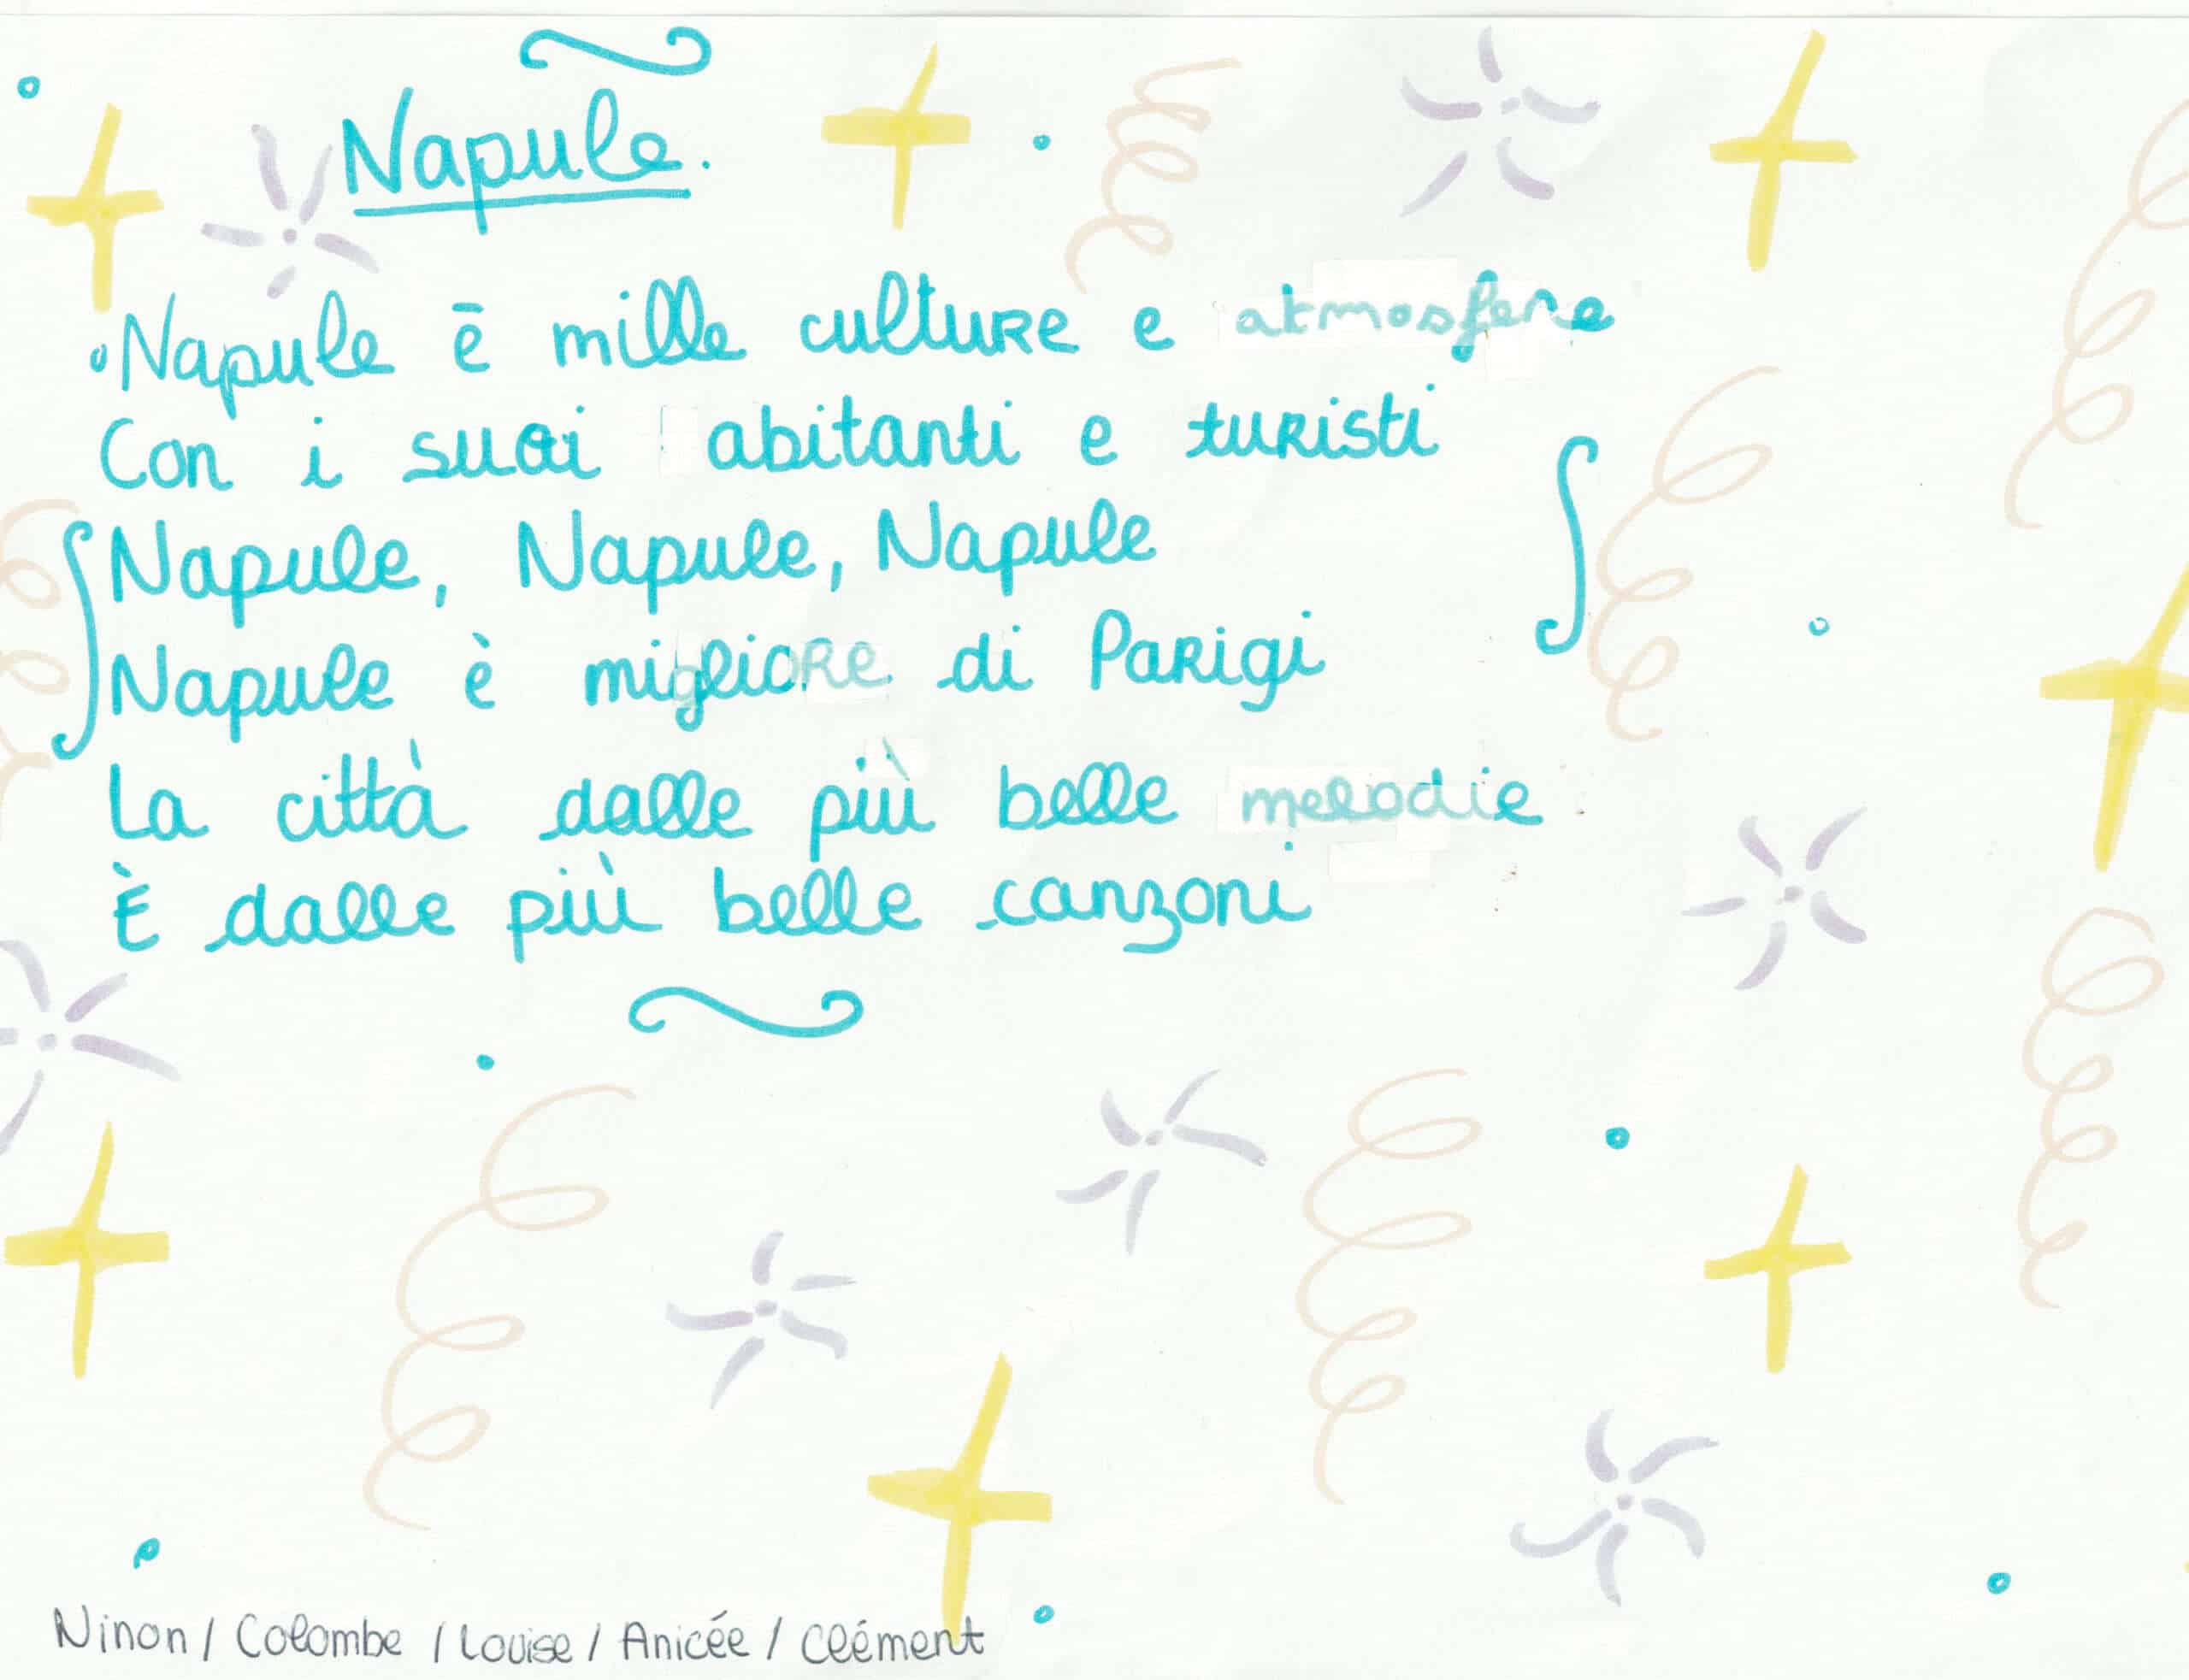 Napule.
Napule ē mille culture e atmosfere
Con i suoi abitanti e turisti
Napule, Napule, Napule
Napule è migliore di Parigi
La città dalle più belle melodie
È dalle più belle canzoni
Ninon / Colombe / Louise / Anicée / Clément